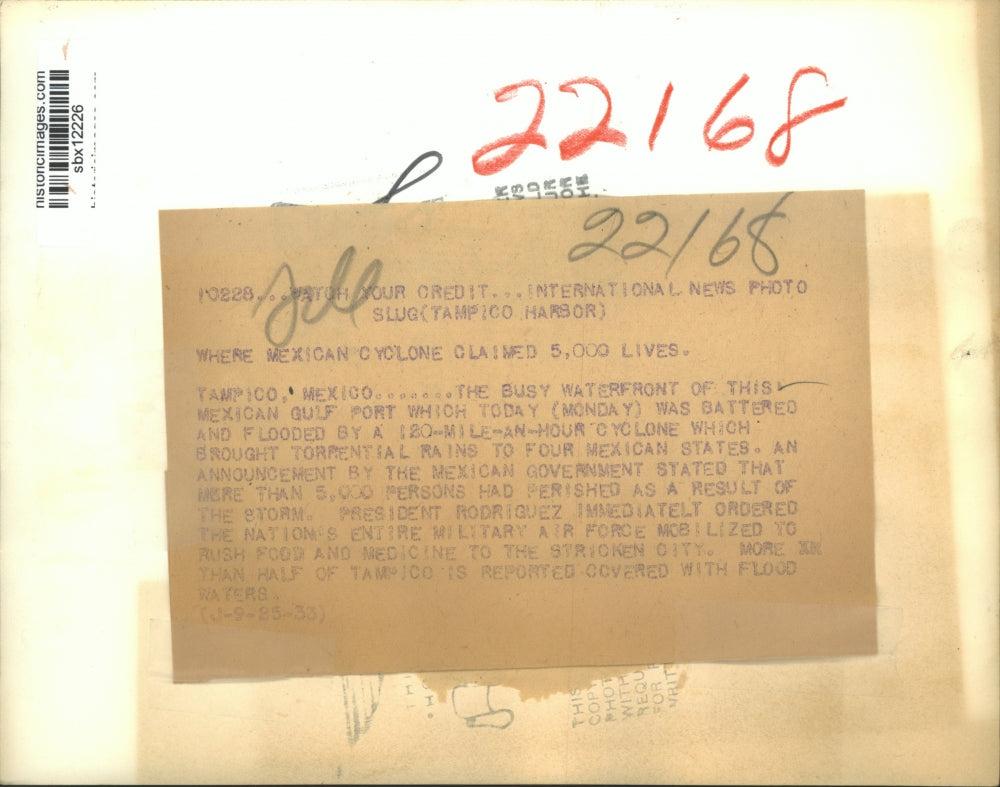 historicimages.com
sbx12226
22168
22168
10228...WATCH YOUR CREDIT...INTERNATIONAL NEWS PHOTO
SLUG(TAMPICO HARBOR)
WHERE MEXICAN CYCLONE CLAIMED 5,000 LIVES.
TAMPICO, MEXICO.......THE BUSY WATERFRONT OF THIS
MEXICAN GULF PORT WHICH TODAY (MONDAY) WAS BATTERED
AND FLOODED BY A 120-MILE-AN-HOUR CYCLONE WHICH
BROUGHT TORRENTIAL RAINS TO FOUR MEXICAN STATES. AN
ANNOUNCEMENT BY THE MEXICAN GOVERNMENT STATED THAT
MORE THAN 5,000 PERSONS HAD PERISHED AS A RESULT OF
THE STORM. PRESIDENT RODRIGUEZ IMMEDIATELT ORDERED
THE NATION'S ENTIRE MILITARY AIR FORCE MOBILIZED TO
RUSH FOOD AND MEDICINE TO THE STRICKEN CITY. MORE XX
THAN HALF OF TAMPICO IS REPORTED COVERED WITH FLOOD
WATERS.
(J-9-25-33)
THIS
COPY
PHOT
WITH
REQU
FOR
WRIT